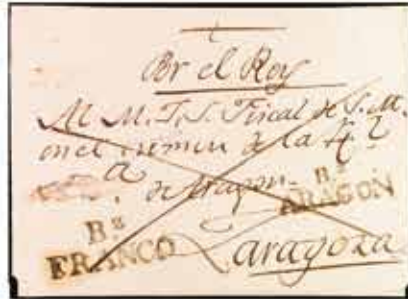 Por el Rey
Al M. I. S. Fiscal de S. M.
en el crimen de la
de Aragon
Bz
ARAGON
Bz
FRANCO
Zaragoza